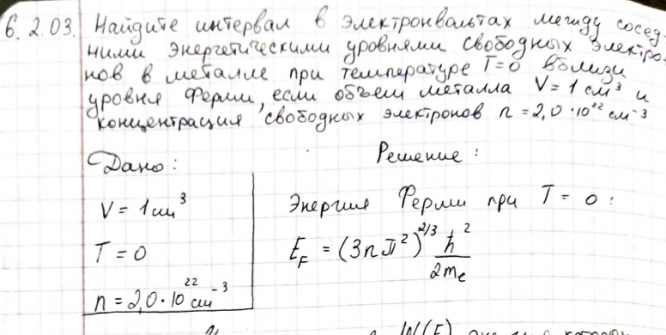 6.2.03. Найдите интервал в электронвольтах между сосед-
ними энергетическими уровнями свободных электро-
нов в металле при температуре T=0 вблизи
уровня Ферми, если объем металла V = 1 см³ и
концентрация свободных электронов n = 2,0·10²² см⁻³
Дано:
Решение:
V = 1 см³
Энергия Ферми при T = 0:
T = 0
E_F = (3nπ²)^{2/3} ħ²/2mₑ
n = 2,0·10²² см⁻³